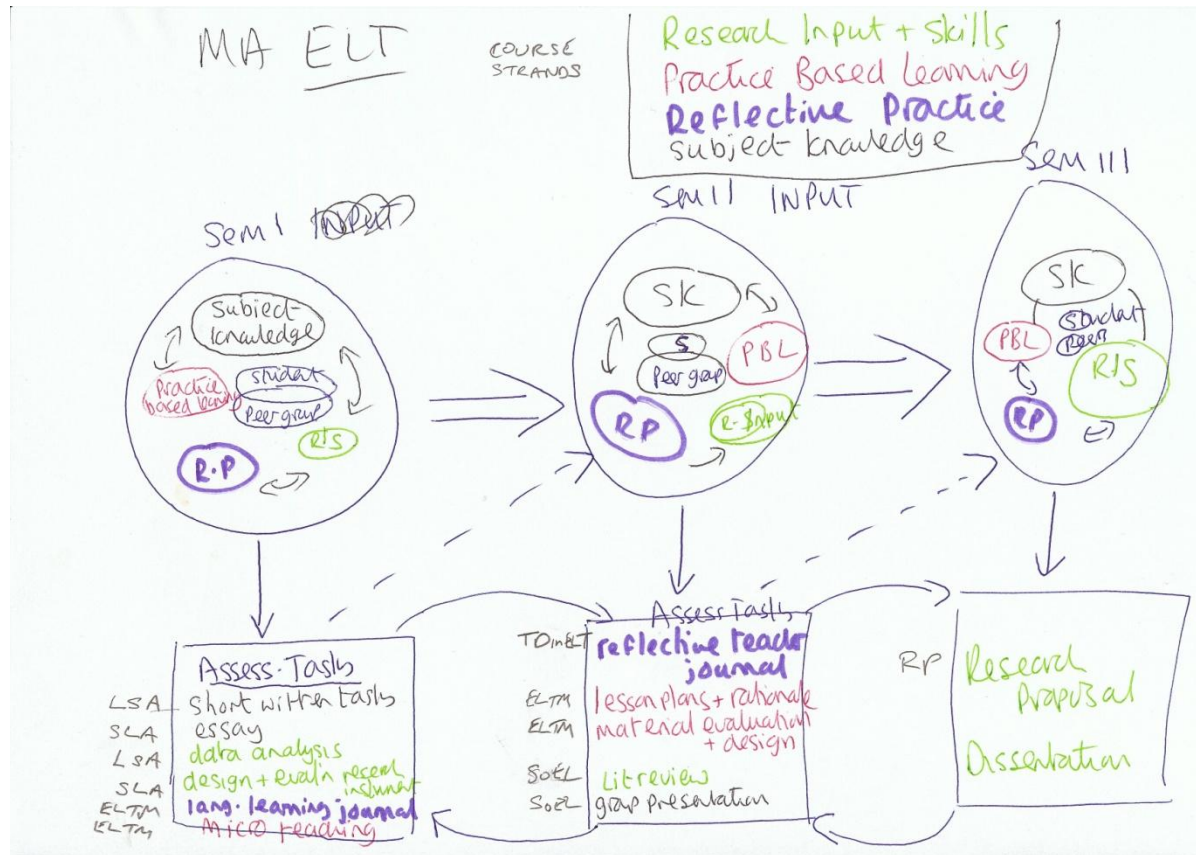 MA ELT
COURSE
STRANDS
Research Input + Skills
Practice Based Learning
Reflective Practice
Subject knowledge
Sem I INPUT
Sem II INPUT
Sem III
Subject
knowledge
Practice
based learning
Student
Peer group
R/S
R.P
SK
S
Peer group
PBL
RP
R-Input
SK
Student
Peers
PBL
R/S
RP
Assess. Tasks
LSA short written tasks
SLA essay
LSA data analysis
SLA design + evaln research
instrument
ELTM lang. learning journal
ELTM micro teaching
Assess Tasks
TDinELT reflective teacher
journal
ELTM lesson plans + rationale
ELTM material evaluation
+ design
SoEL Lit review
SoEL group presentation
RP
Research
Proposal
Dissertation